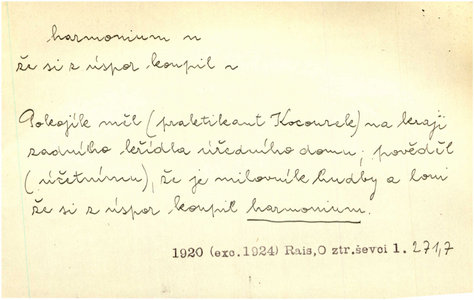 harmonium n
že si z úspor koupil ~
Pokojík měl (praktikant Kocourek) na kraji
zadního křídla úředního domu; pověděl
(účetnímu), že je milovník hudby a loni
že si z úspor koupil harmonium.
1920 (exc. 1924) Rais, O ztr. ševci 1. 271,7